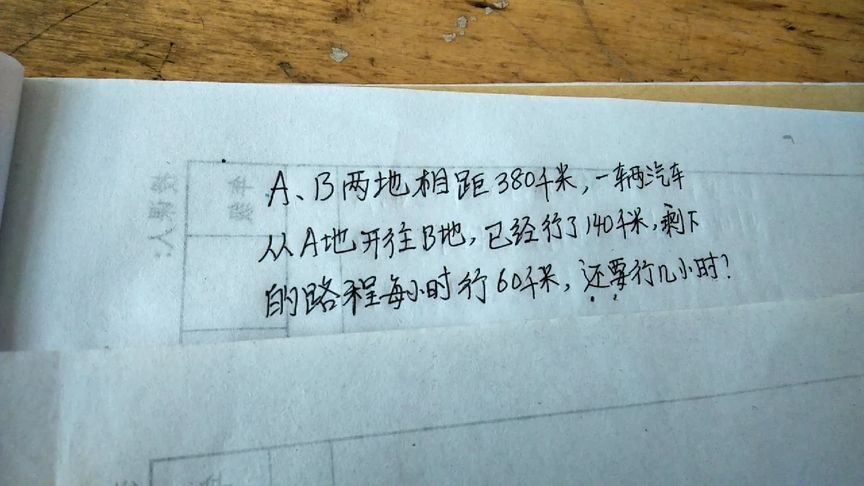 A、B两地相距380千米,一辆汽车
从A地开往B地,已经行了140千米,剩下
的路程每小时行60千米,还要行几小时?